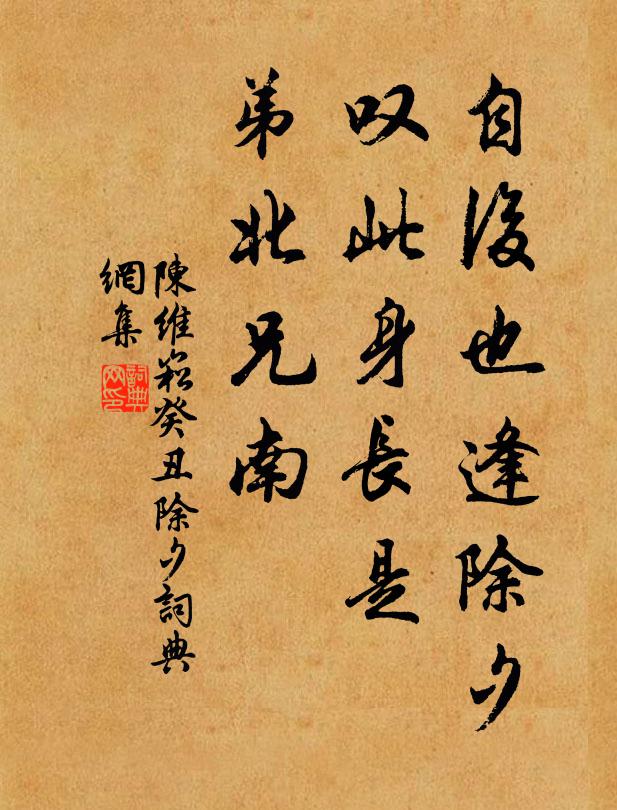 自後也逢除夕
叹此身長是
弟北兄南
陳維崧癸丑除夕詞典
網集
詞典網印